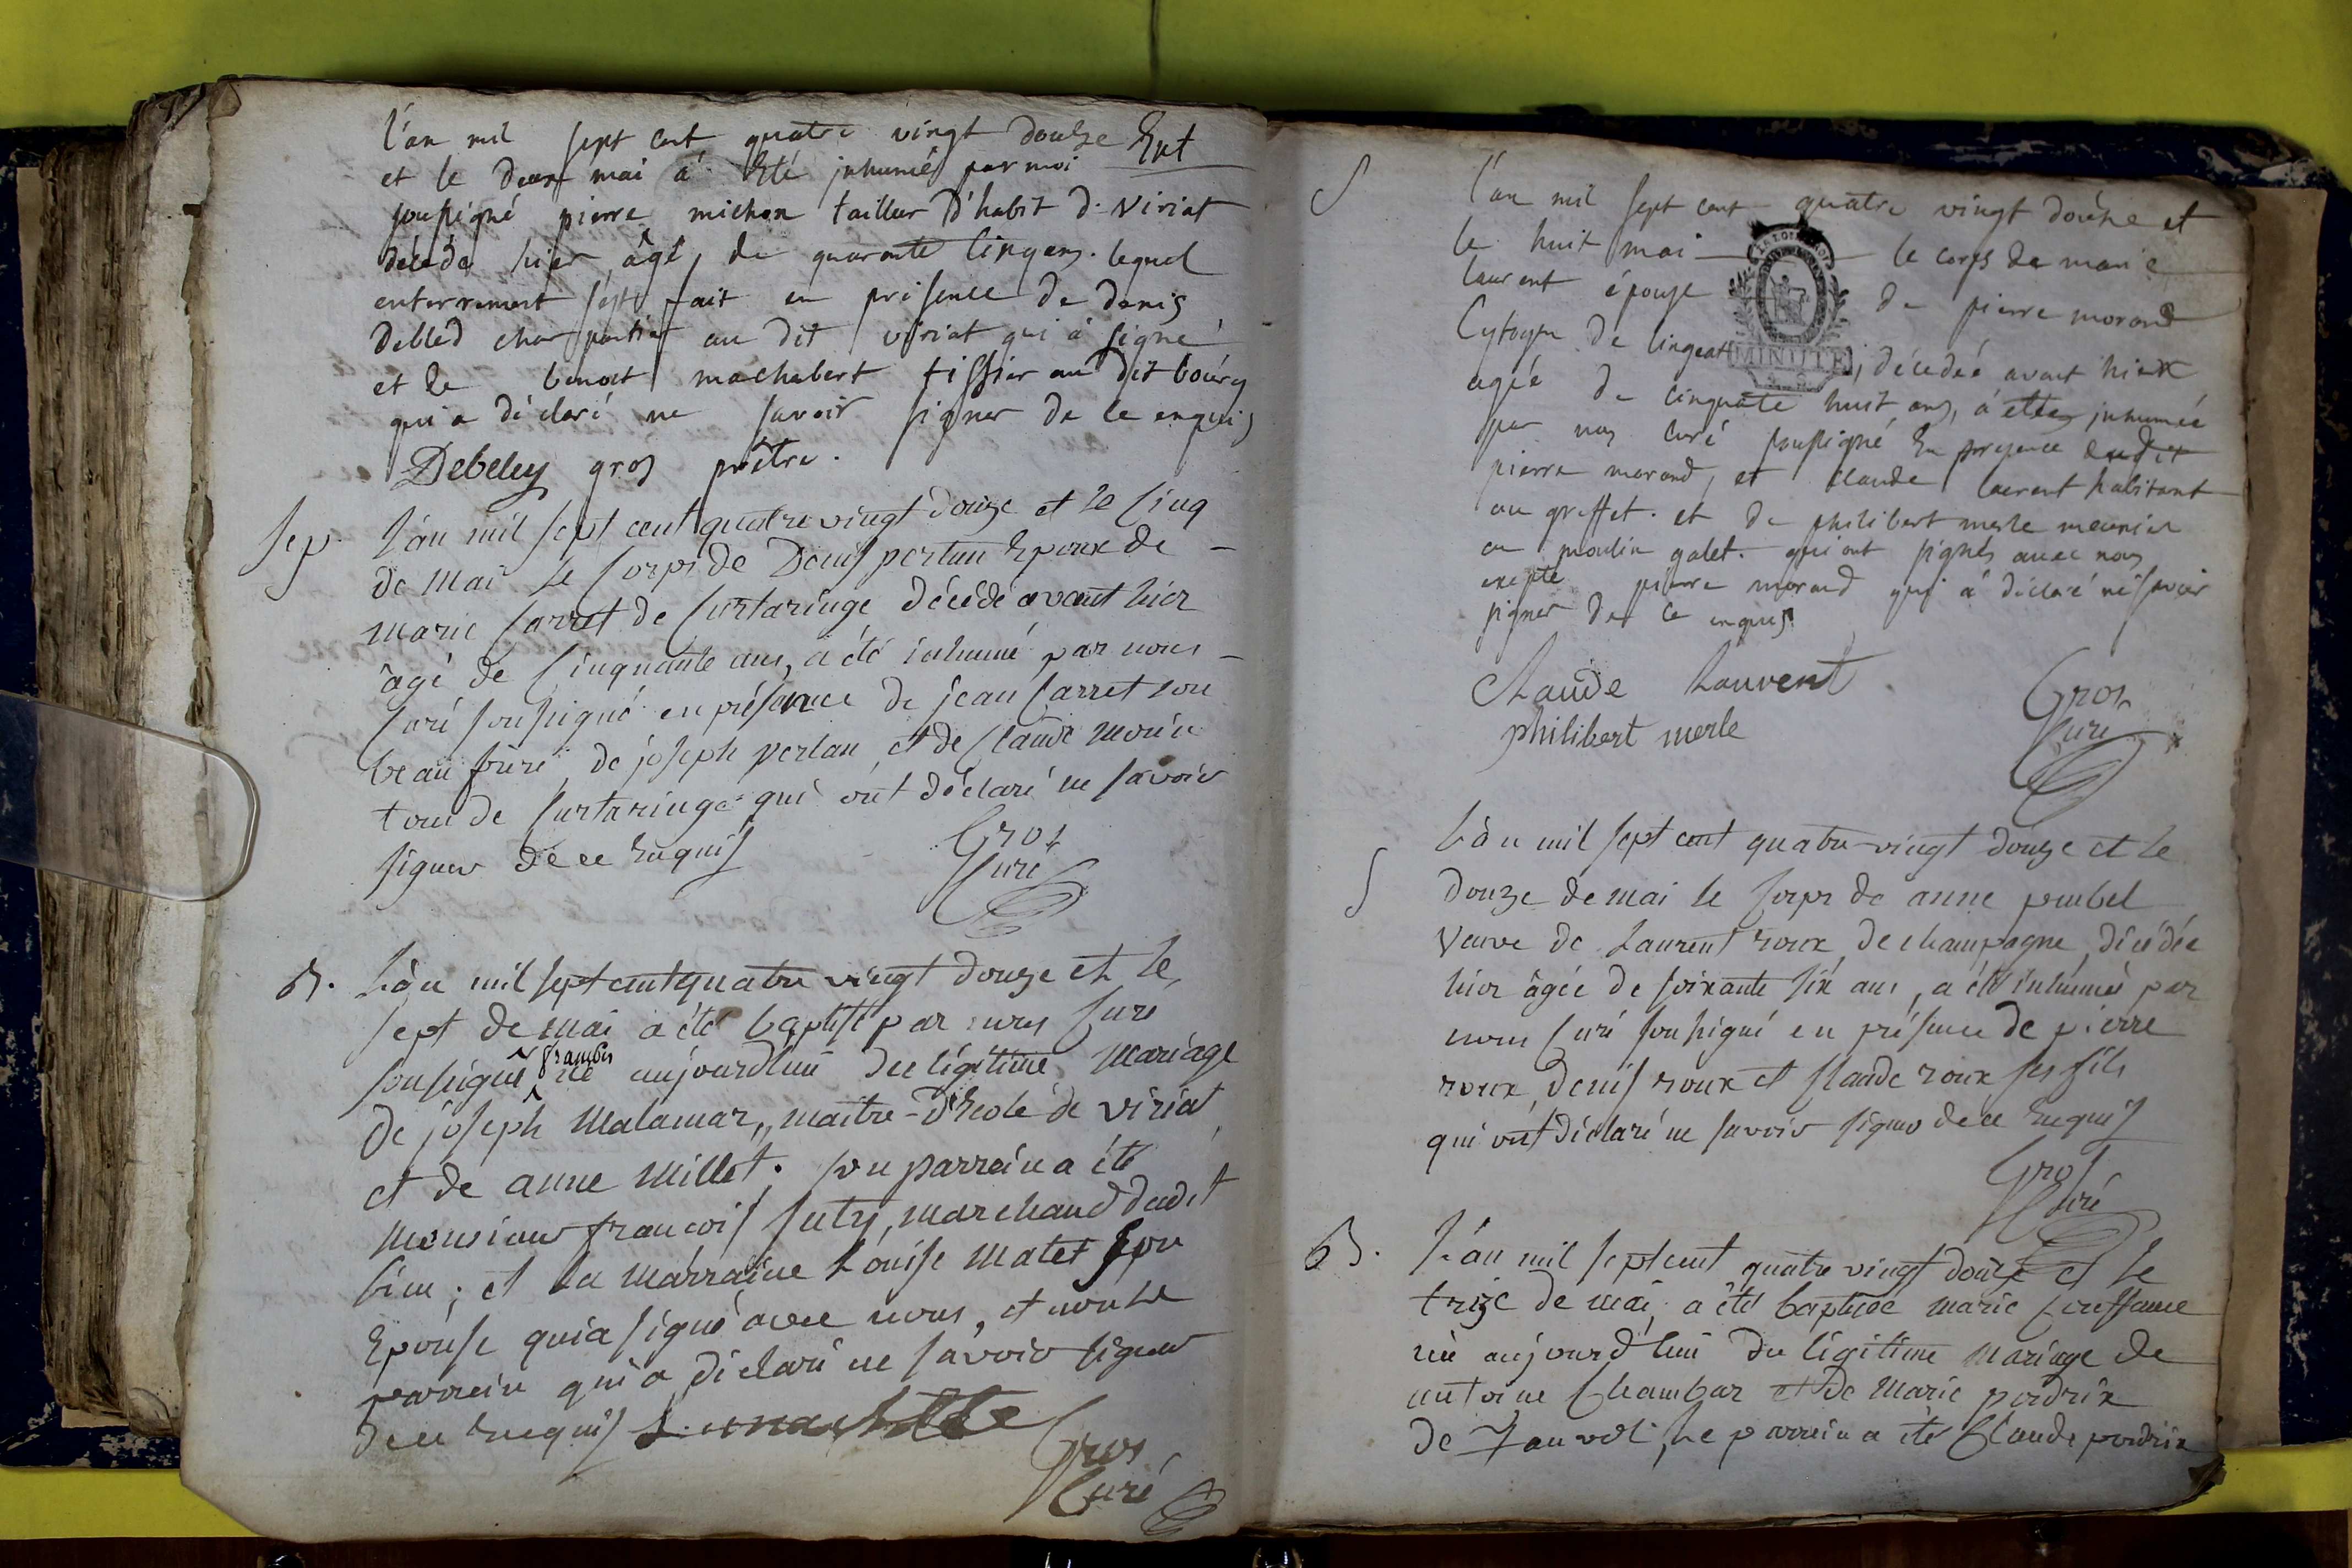 l'an mil sept cent quatre vingt douhze Ent
et le deux mai à Eté jnhumés par moi
soussigné pierre michon tailleur d'habit d. Viriat
décédé hier, âgé, de quarante cinq ans. lequel
enterrement s'est fait en présence de denis
debled charpentier au dit viriat qui à signé
et de benoit machabert tissier au dit bourg
qui a déclaré ne savoir signer de ce enquis
Debeley gros prêtre.
sep. L'an mil sept cent quatre vingt douze et le cinq
de mai le corps de Denis pertan Epoux de
marie Carret de Curtaringe, décédé avant hier
âgé de Cinquante ans, a été inhumé par nous
Curé soussigné en présence de jean Carret son
beau frère, de joseph pertan, et de Claude morin
tous de Curtaringe qui ont déclaré ne savoir
signer de ce Enquis Gros
Curé
B. L'an mil sept cent quatre vingt douze et le
sept de mai a été baptisé par nous Curé
françois
soussigné né aujourd'hui du légitime mariage
de joseph Malamar, maitre-d'Ecole de viriat
et de anne Millet. son parrein a été
Monsieur françois Suty, marchand dudit
lieu; et la marraine Louise Matet son
Epouse qui a signé avec nous, et non le
parrein qui a déclaré ne savoir signer
de ce Enquis
Gros
Curé
S l'an mil sept cent quatre vingt douhze et
le huit mai le corps de marie
laurent épouse de pierre morand
LA LOI LE ROI
MINUTE
Cytoyen de lingeat, décédée avant hier
agée de cinquate huit ans, à etée jnhumée
par nous curé soussigné En presence dudit
pierre morand, et claude laurent habitant
au greffet. et de philibert merle meunier
au moulin galet. qui ont signés avec nous
exepté pierre morand qui à déclaré ne savoir
signer de ce enquis
Claude Laurent Gros
philibert merle Curé
S L'an mil sept cent quatre-vingt douze et le
douze de mai le corps de anne poubel
Veuve de Laurent roux, de champagne, décédée
hier âgée de soixante six ans, a été inhumée par
nous Curé soussigné en présence de pierre
roux, denis roux et Claude roux ses fils
qui ont déclaré ne savoir signer de ce Enquis
Gros
Curé
B. L'an mil sept cent quatre vingt douze et le
treize de mai, a été baptisée marie
née aujourd'hui du légitime mariage de
antoine Chambar et de Marie perdrix
de, Le parrein a été Claude perdrix